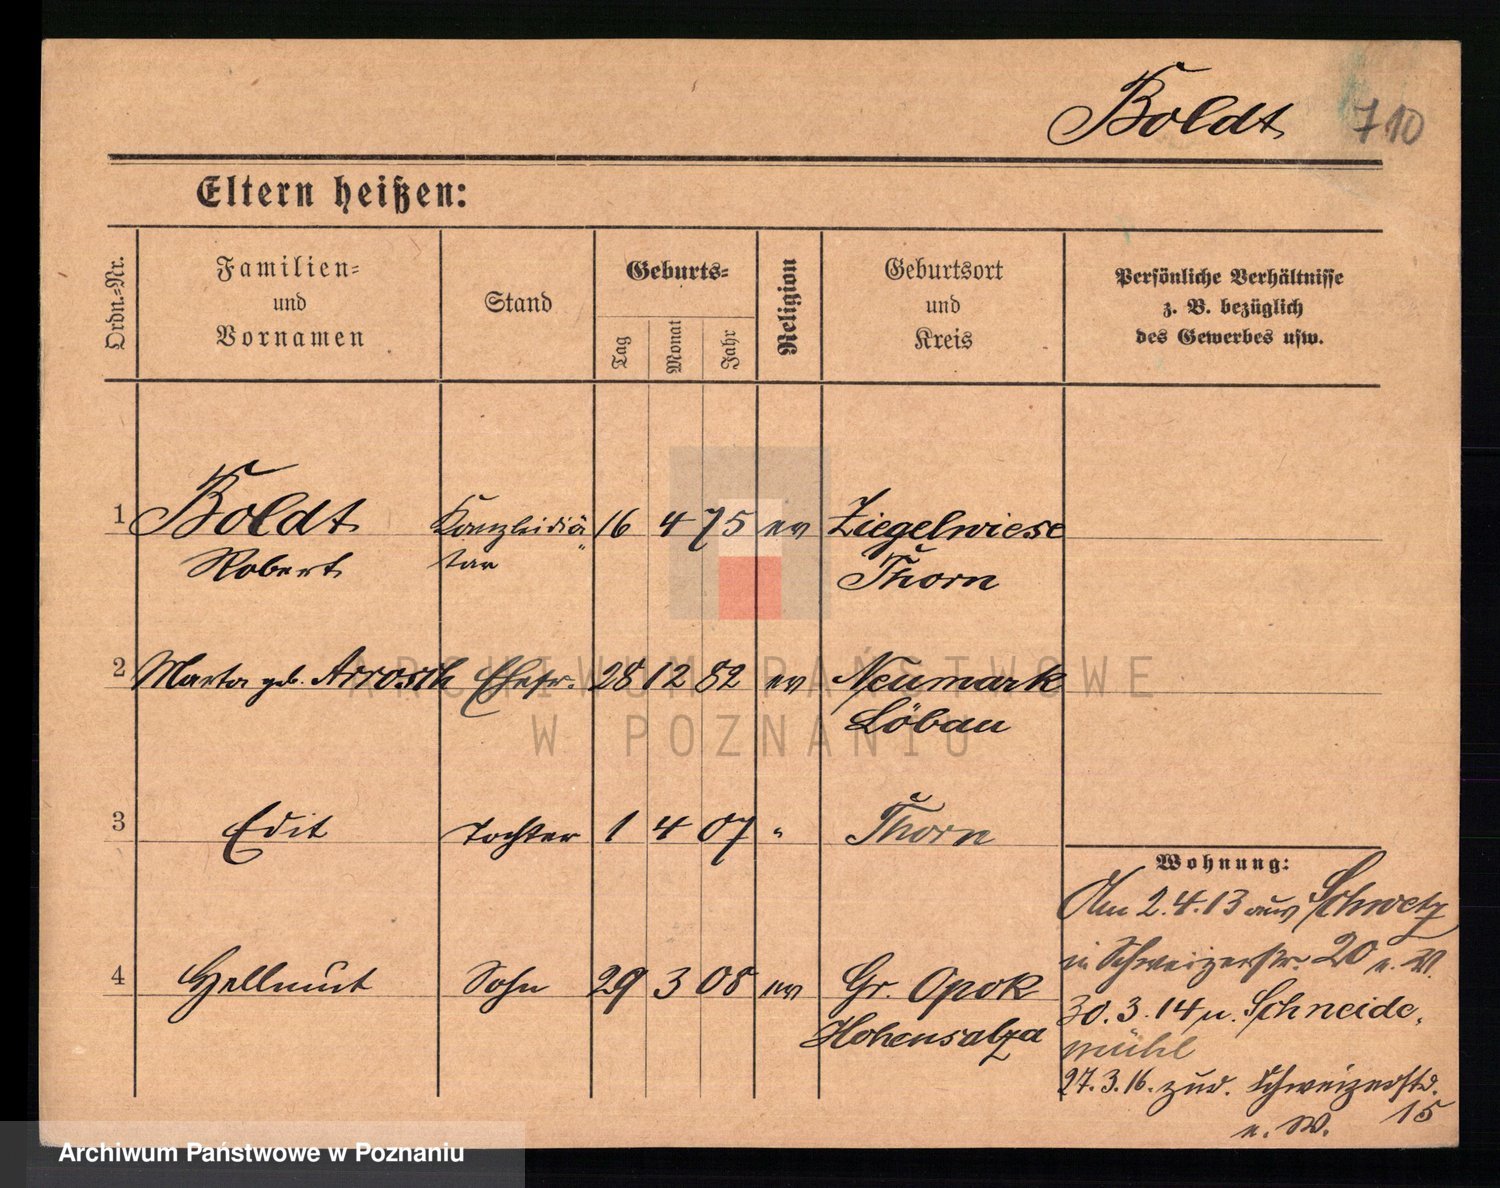 Boldt 710
Eltern heißen:
Ordn.-Nr.
Familien-
und
Vornamen
Stand
Geburts-
Tag
Monat
Jahr
Religion
Geburtsort
und
Kreis
Persönliche Verhältnisse
z. B. bezüglich
des Gewerbes usw.
1 Boldt Kanzleidiä 16 4 75 ev Ziegelwiese
Robert tar Thorn
2 Marta geb. Ehefr. 28 12 82 ev Neumark
Löbau
3 Edit Tochter 1 4 07 " Thorn
Wohnung:
Am 2.4.13 aus Schwetz
in Schweizerstr. 20 e. W.
4 Hellmut Sohn 29 3 08 ev Gr. Opok
Hohensalza
30.3.14 n. Schneide-
mühl
27.3.16. zur. Schweizerstr.
15
e. W.
ARCHIWUM PAŃSTWOWE
W POZNANIU
Archiwum Państwowe w Poznaniu